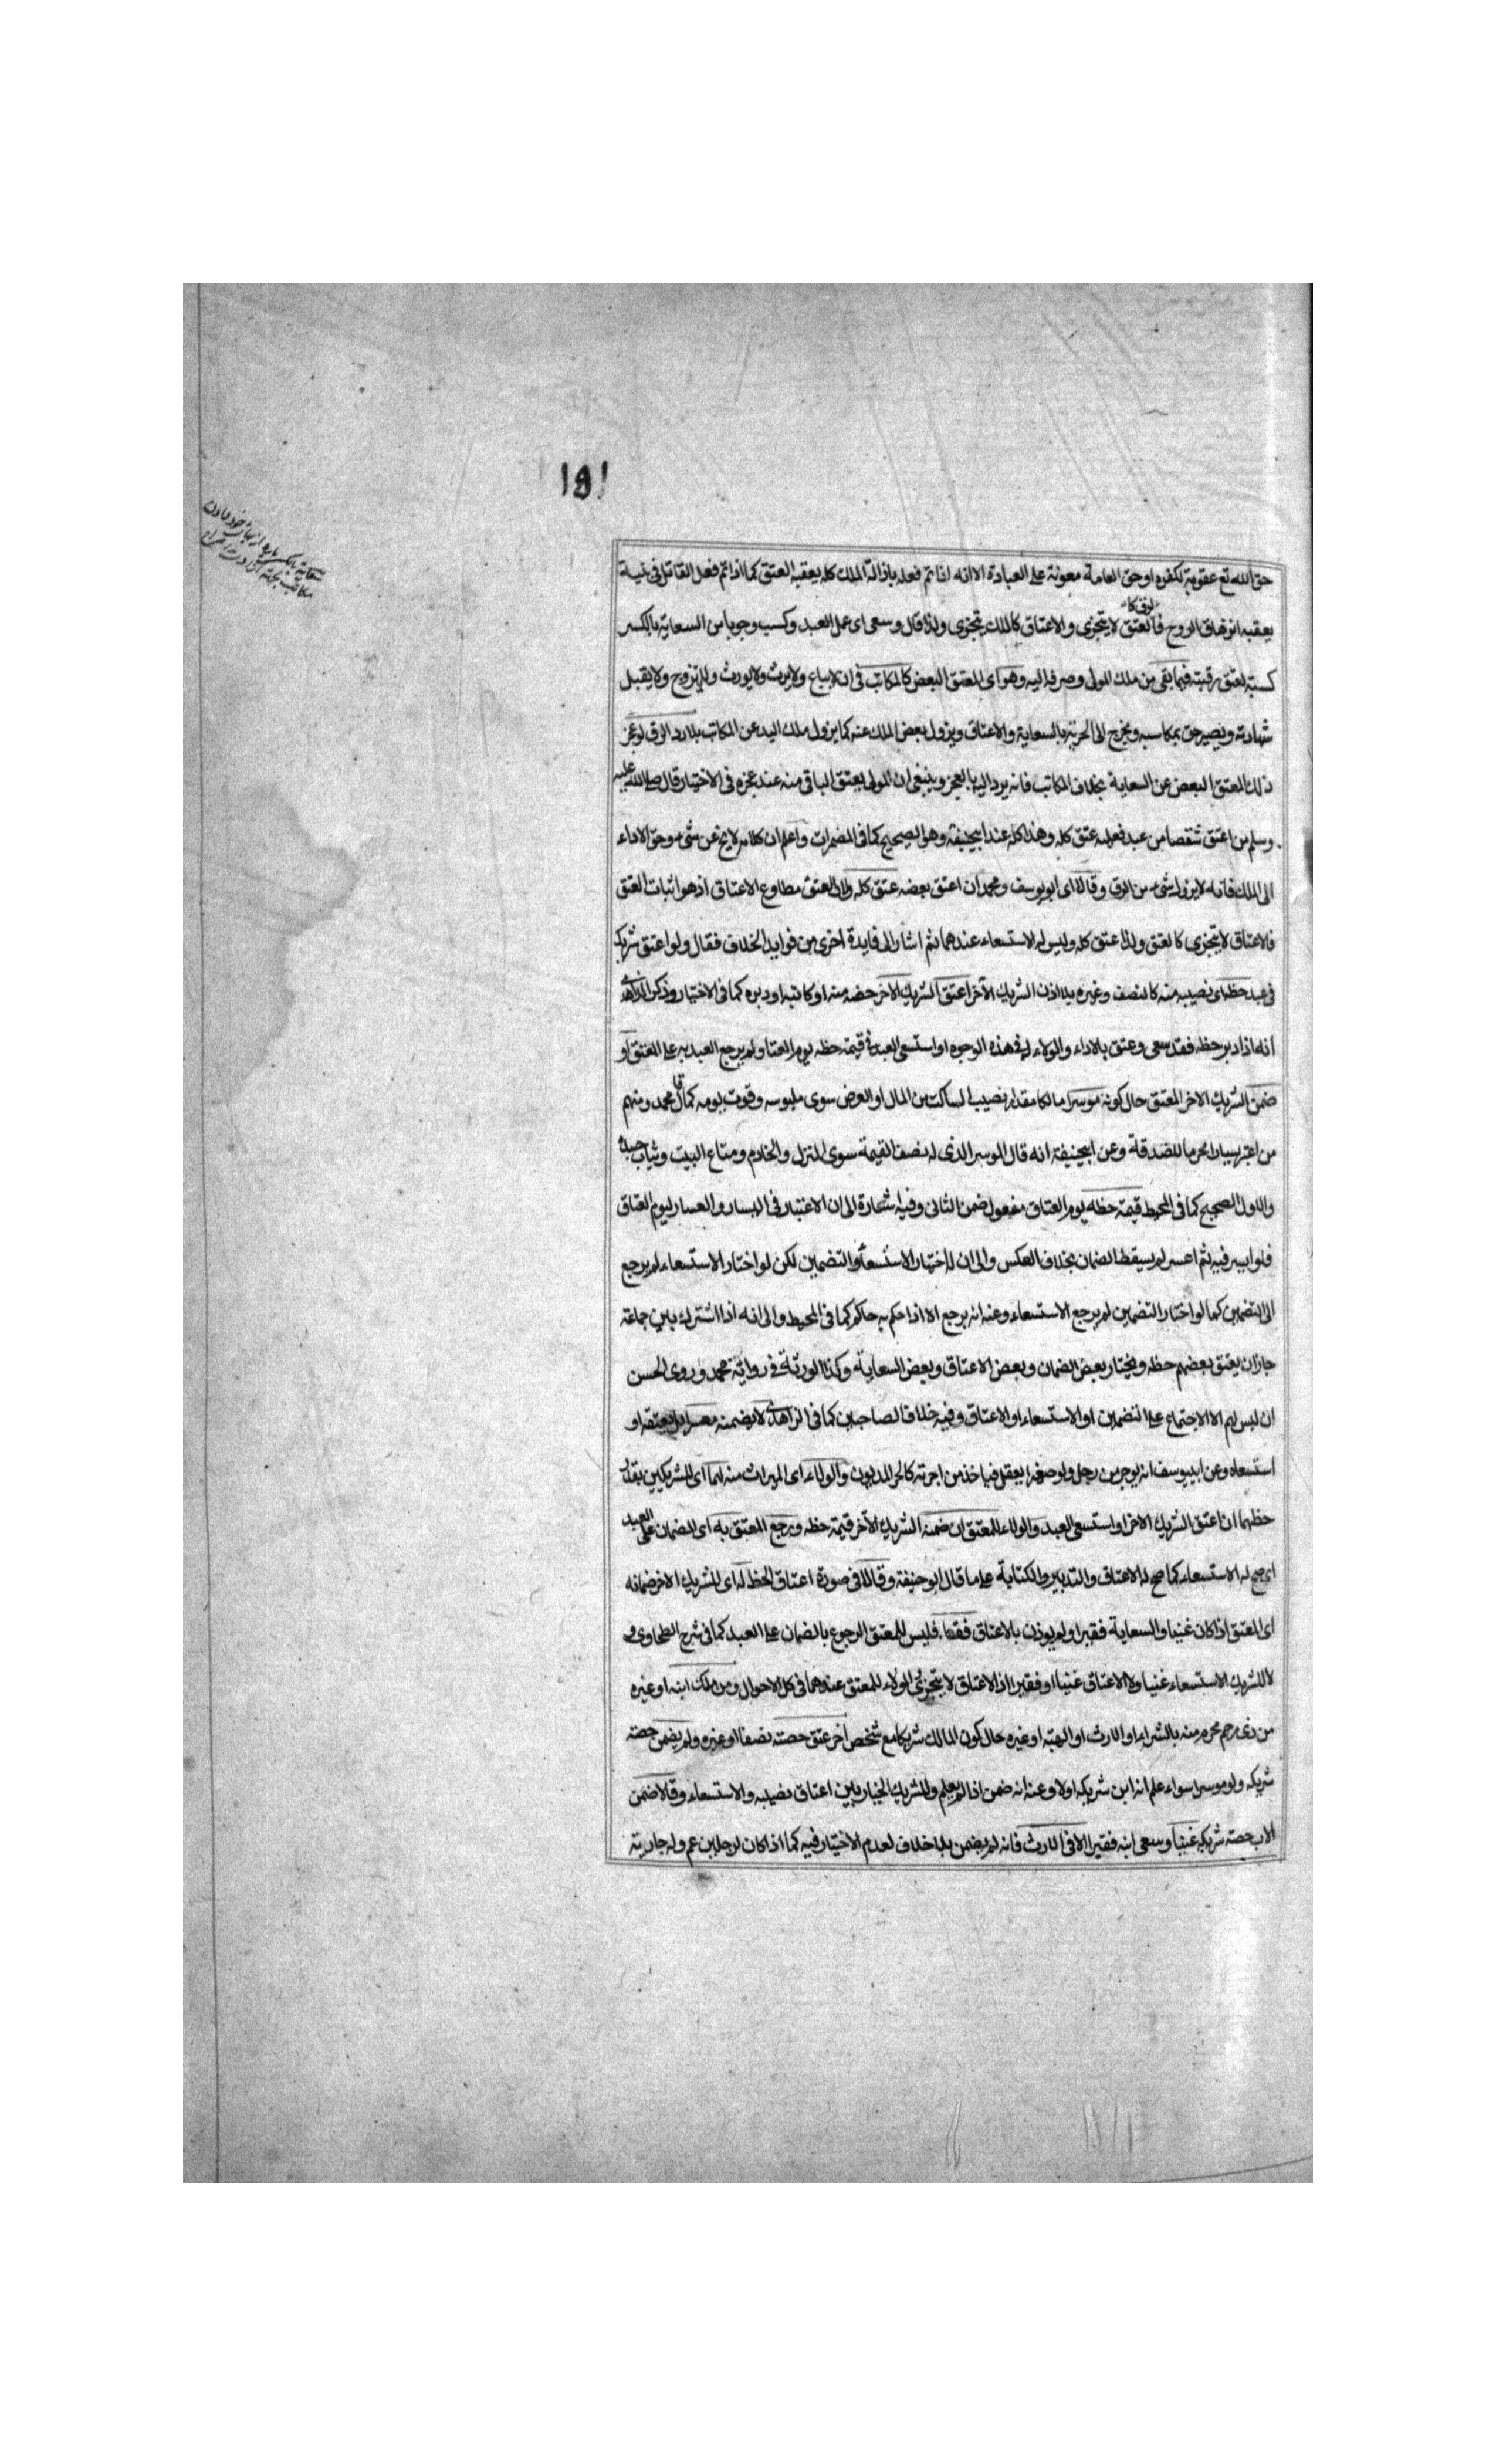 ١٥١
حق الله تع عقوبة لكفره او حق العامة معونة على العبادة الا انه اذا تم فعله بازالة الملك كله يعقبه العتق كما اذا تم فعل القاتل فى بنية
يعقبه انزهاق الروح فالعتق كالرق لا يتجزى والاعتاق كالملك يتجزى ولذا قال وسعى اى عمل العبد وكسب وجوبا من السعاية بالكسر
كسبه لعتق رقبته فيما بقى من ملك المولى وصرفه اليه وهو اى المعتق البعض كالمكاتب فى ان لا يباع ولا يرث ولا يورث ولا يتزوج ولا يقبل
شهادته ويصير احق بمكاسبه ويخرج الى الحرية بالسعاية والاعتاق ويزول بعض الملك عنه كما يزول ملك اليد عن المكاتب بلا رد الى الرق لو عجز
ذلك المعتق البعض عن السعاية بخلاف المكاتب فانه يرد اليه بالعجز وينبغى ان المولى يعتق الباقى منه عند عجزه فى الاختيار قال صلى الله عليه
وسلم من اعتق شقصا من عبد فعليه عتق كله وهذا كله عند ابيحنيفة وهو الصحيح كما فى المضمرات واعلم ان كلامه لا يخ عن شىء وحق الاداء
الى الملك فانه لا يزول شىء من الرق وقالا اى ابو يوسف ومحمد ان اعتق بعضه عتق كله والى العتق مطاوع الاعتاق اذ هو اثبات العتق
فالاعتاق لا يتجزى كالعتق ولذا عتق كله وليس له الاستسعاء عندهما ثم اشار الى فايدة اخرى من فوايد الخلاف فقال ولو اعتق شريك
فى عبد حظه اى نصيبه منه كالنصف وغيره بلا اذن الشريك الآخر اعتق الشريك الآخر حصه منه او كاتبه او دبره كما فى الاختيار وذكر الزاهدى
انه اذا دبر حظه فقد سعى وعتق بالاداء والولاء له فى هذه الوجوه او استسعى العبد فى قيمة حظه يوم العتاق ولم يرجع العبد به على المعتق او
ضمن الشريك الاخر المعتق حال كونه موسرا مالكا مقدار نصيب الساكت من المال او العرض سوى ملبوسه وقوت يومه كما قال محمد ومنهم
من اعتبر يسارا محرما للصدقة وعن ابيحنيفة انه قال الموسر الذى له نصف القيمة سوى المنزل والخادم ومتاع البيت وثياب جسده
والاول الصحيح كما فى المحيط قيمة حظه يوم العتاق مفعول ضمن الثانى وفيه اشارة الى ان الاعتبار فى اليسار والعسار ليوم العتاق
فلو ايسر فيه ثم اعسر لم يسقط الضمان بخلاف العكس والى ان له اختيار الاستسعاء والتضمين لكن لو اختار الاستسعاء لم يرجع
الى التضمين كما لو اختار التضمين لم يرجع الاستسعاء وعنه انه يرجع الا اذا حكم به حاكم كما فى المحيط والى انه اذا اشترك بين جماعة
جاز ان يعتق بعضهم حظه ويختار بعض الضمان وبعض الاعتاق وبعض السعاية وكذا الورثة فى رواية محمد وروى الحسن
ان ليس لهم الا الاجتماع على التضمين او الاستسعاء او الاعتاق وفيه خلاف الصاحبين كما فى الزاهدى لا يضمنه معسرا بل يعتقه او
استسعاه وعن ابييوسف انه يوجر من رجل ولو صغيرا يعقل فياخذ من اجرته كالحر المديون والولاء اى الميراث منه لهما اى للشريكين بقدر
حظهما ان اعتق الشريك الاخر او استسعى العبد والولاء للمعتق ان ضمنه الشريك الآخر قيمة حظه ويرجع المعتق به اى الضمان على العبد
اى صح له الاستسعاء كما صح له الاعتاق والتدبير والكتابة على ما قال ابو حنيفة وقالا فى صورة اعتاق الحظ له اى للشريك الاخر ضمانه
اى المعتق اذا كان غنيا والسعاية فقيرا ولم يوذن بالاعتاق فقط فليس للمعتق الرجوع بالضمان على العبد كما فى شرح الطحاوى و
لا للشريك الاستسعاء غنيا ولا الاعتاق غنيا او فقيرا اذ الاعتاق لا يتجزى والولاء للمعتق عندهما فى كل الاحوال ومن ملك ابنه او غيره
من ذى رحم محرم منه بالشراء او الارث او الهبة او غيره حال كون المالك شريكا مع شخص اخر عتق حصته نصفا او غيره ولم يضمن حصته
شريكه ولو موسرا سواء علم انه ابن شريكه اولا وعنه انه ضمن اذا لم يعلم وللشريك الخيار بين اعتاق نصيبه والاستسعاء وقالا ضمن
الاب حصته شريكه غنيا وسعى ابنه فقيرا الا فى الارث فانه لم يضمن بلا خلاف لعدم الاختيار فيه كما اذا كان لرجل ابن عم وله جارية